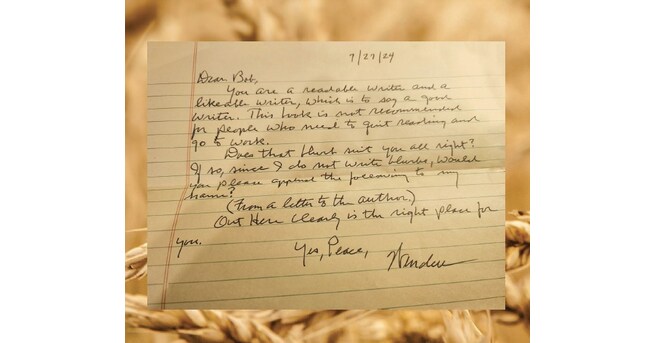 9/27/24
Dear Bob,
You are a readable writer and a
likeable writer, which is to say a good
writer. This book is not recommended
for people who need to quit reading and
go to work.
Does that blurb suit you all right?
If so, since I do not write blurbs, would
you please append the following to my
name?
(From a letter to the author.)
Out Here clearly is the right place for
you.
Yes, Peace,
Wendell